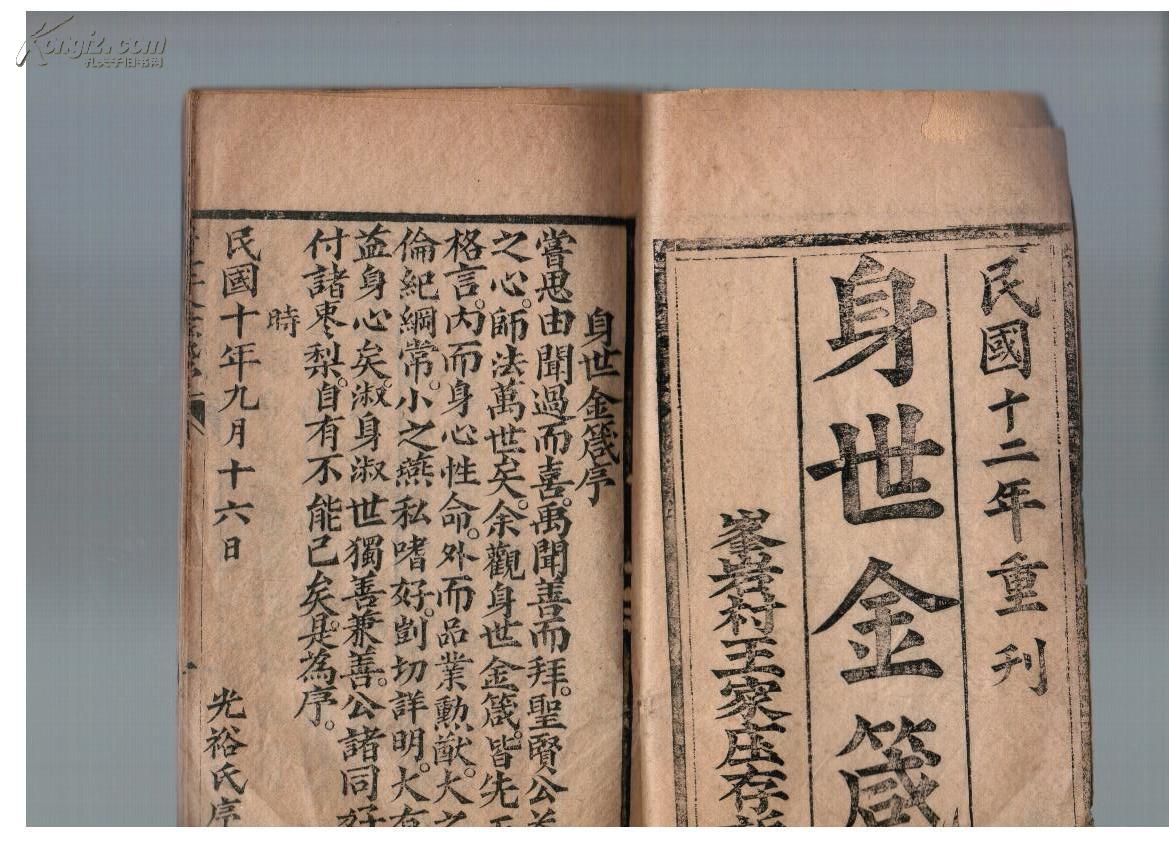 Kongfz.com
孔夫子旧书网
民國十二年重刊
身世金箴
峯岩村王家庄存
身世金箴序
嘗思由聞過而喜。禹聞善而拜。聖賢公
之心。師法萬世矣。余觀身世金箴。皆先
格言。內而身心性命。外而品業勳猷。大之
倫紀綱常。小之燕私嗜好。剴切詳明。大有
益身心矣。淑身淑世獨善兼善。公諸同好
付諸枣梨。自有不能已矣。是為序。
時
民國十年九月十六日 光裕氏序